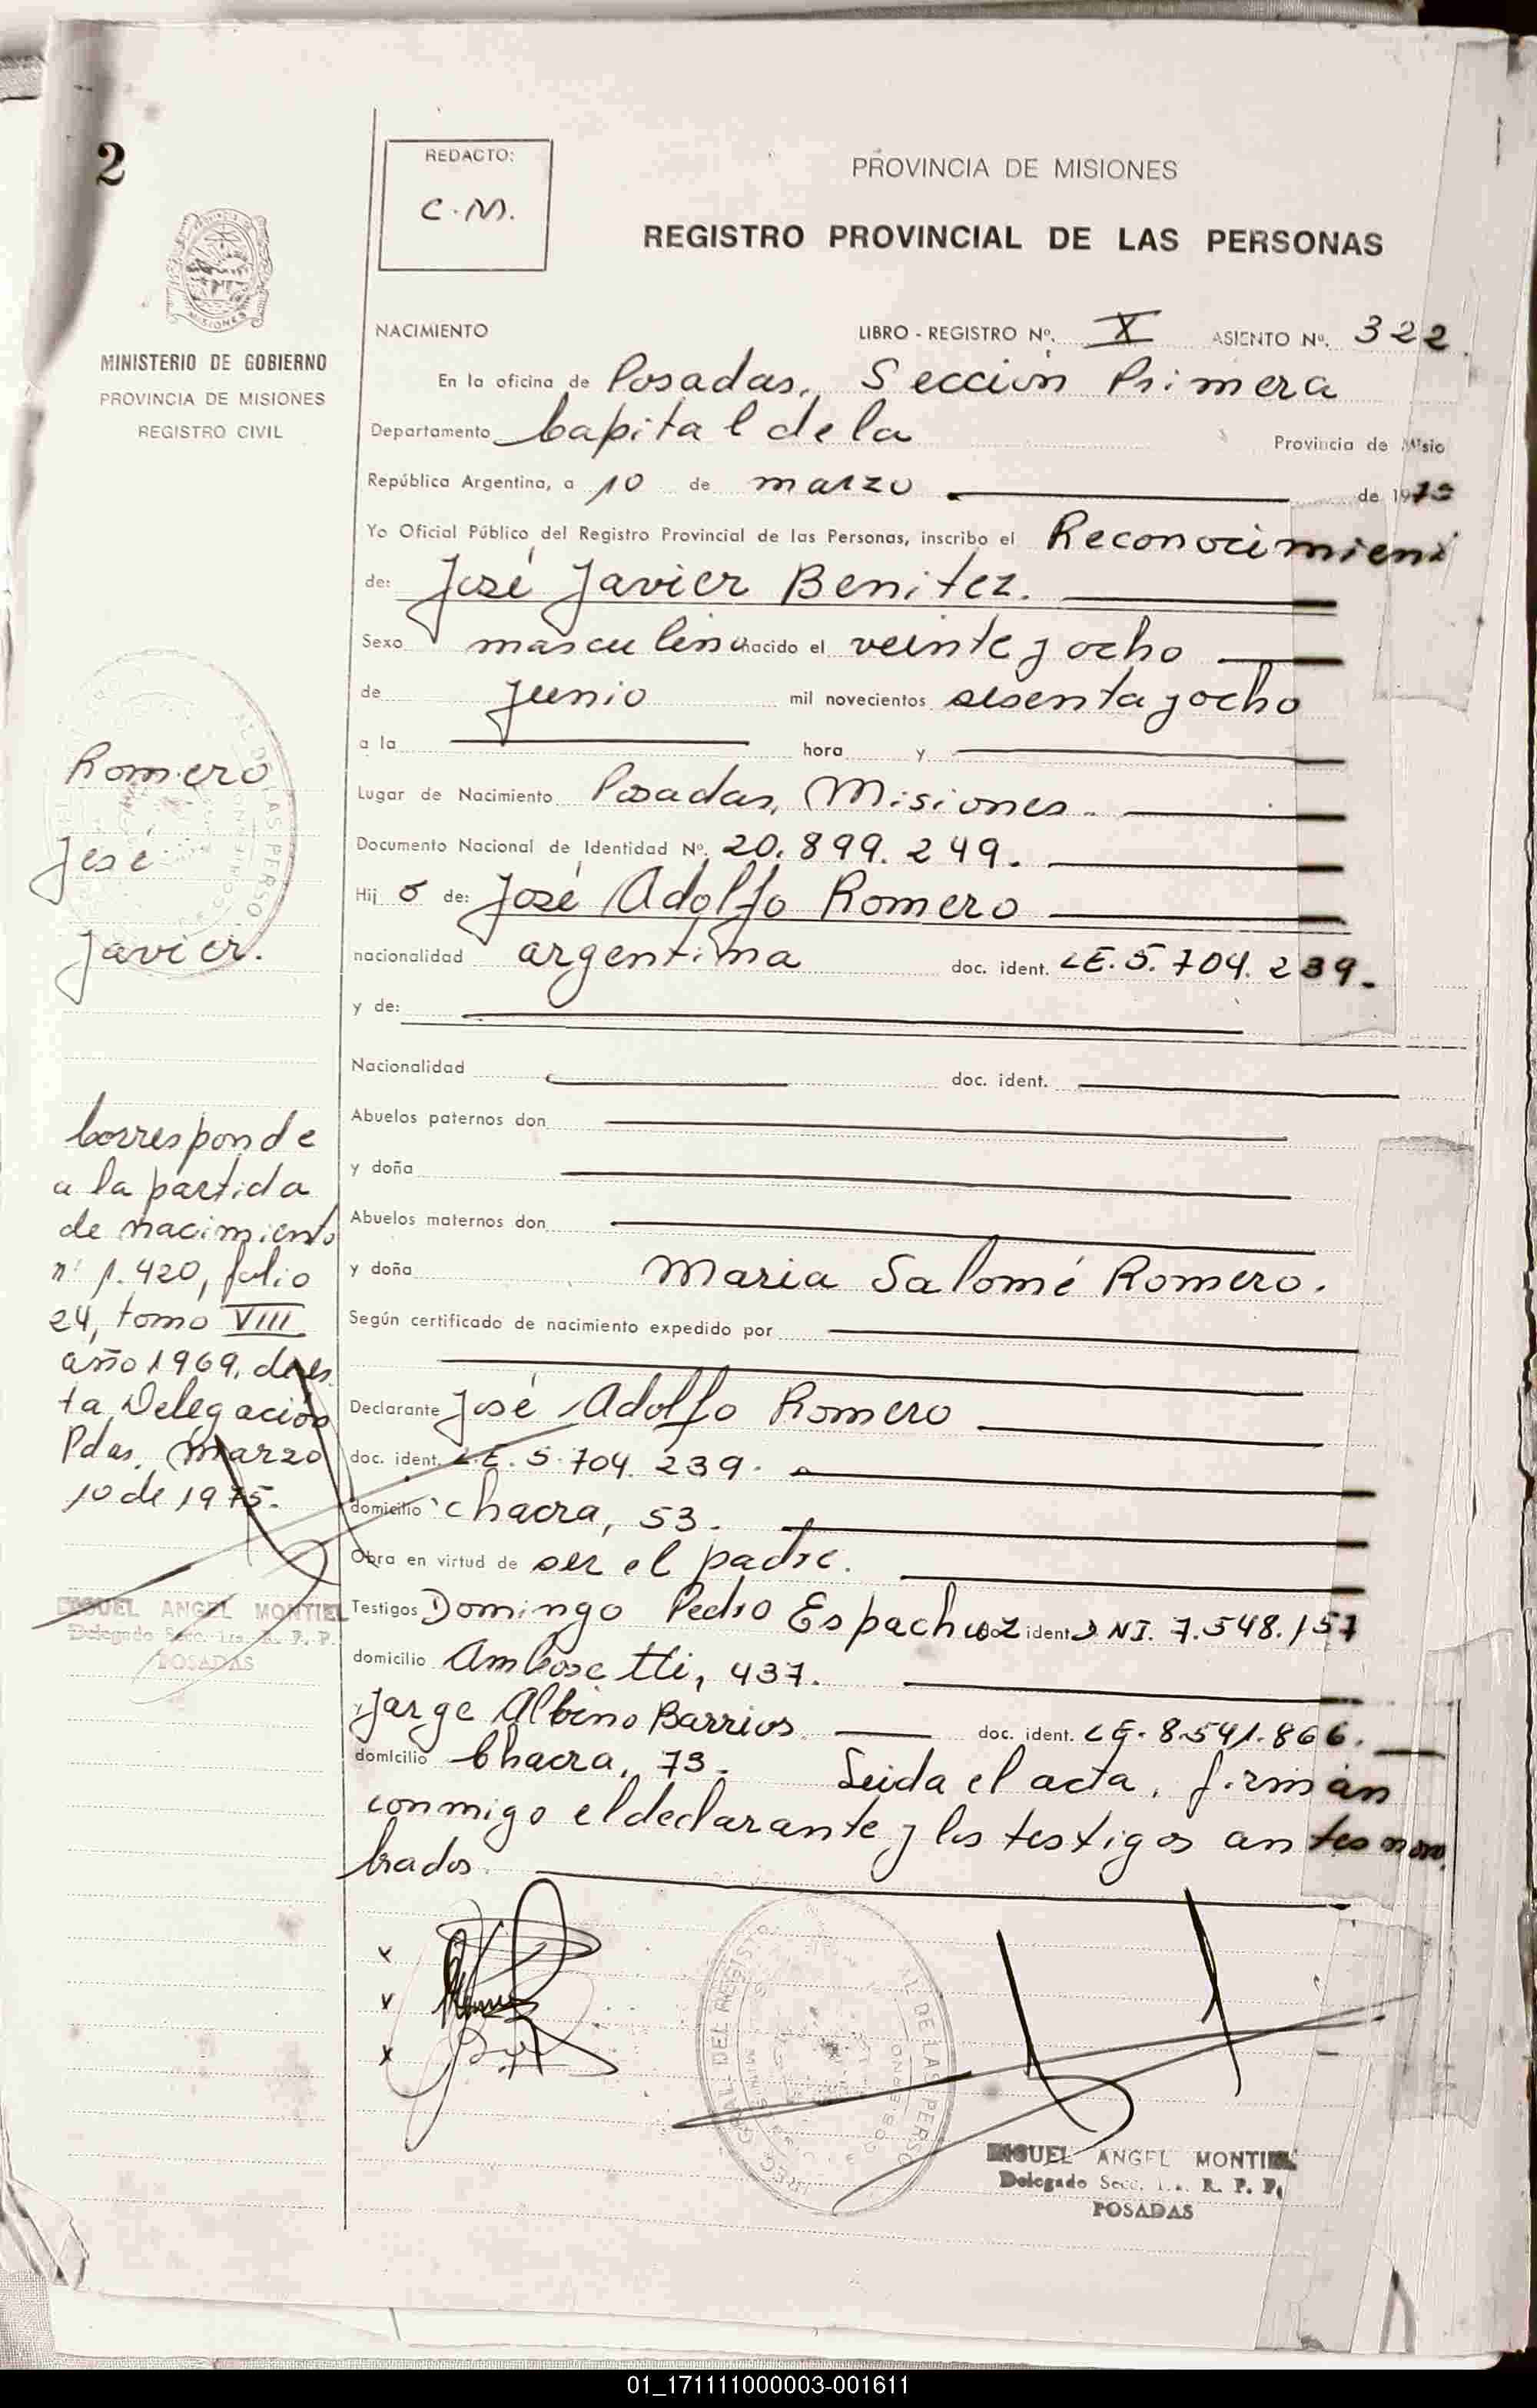 2
REDACTO:
C.M.
PROVINCIA DE MISIONES
REGISTRO PROVINCIAL DE LAS PERSONAS
MISIONES
MINISTERIO DE GOBIERNO
PROVINCIA DE MISIONES
REGISTRO CIVIL
NACIMIENTO LIBRO - REGISTRO Nº. X ASIENTO Nº. 322
En la oficina de Posadas, Sección Primera
Departamento Capital de la Provincia de Misio
República Argentina, a 10 de marzo de 1975
Yo Oficial Público del Registro Provincial de las Personas, inscribo el Reconocimient
de: José Javier Benitez.
Sexo masculino nacido el veinte y ocho
de junio mil novecientos sesenta y ocho
a la hora y
Lugar de Nacimiento Posadas, Misiones.
Documento Nacional de Identidad Nº. 20.899.249.
Hij o de: José Adolfo Romero
nacionalidad argentina doc. ident. LE. 5.704.239.
y de:
Nacionalidad doc. ident.
Abuelos paternos don
y doña
Abuelos maternos don
y doña Maria Salomé Romero.
Según certificado de nacimiento expedido por
Declarante José Adolfo Romero
doc. ident. LE. 5.704.239.
domicilio chacra, 53.
Obra en virtud de ser el padre.
Testigos Domingo Pedro Espachuz doc ident DNI. 7.548.157
domicilio Ambosetti, 437.
y Jorge Albino Barrios doc. ident. LE. 8.541.866.
domicilio Chacra, 73. Leida el acta, firman
conmigo el declarante y los testigos antes nom
brados.
Romero
José
Javier.
Corresponde
a la partida
de nacimiento
nº 1.420, folio
24, tomo VIII
año 1969, de es
ta Delegación
Pdas. Marzo
10 de 1975.
MIGUEL ANGEL MONTIEL
Delegado Secc. 1ra. R. P. P.
POSADAS
MIGUEL ANGEL MONTIEL
Delegado Secc. 1a. R. P. P.
POSADAS
01_171111000003-001611